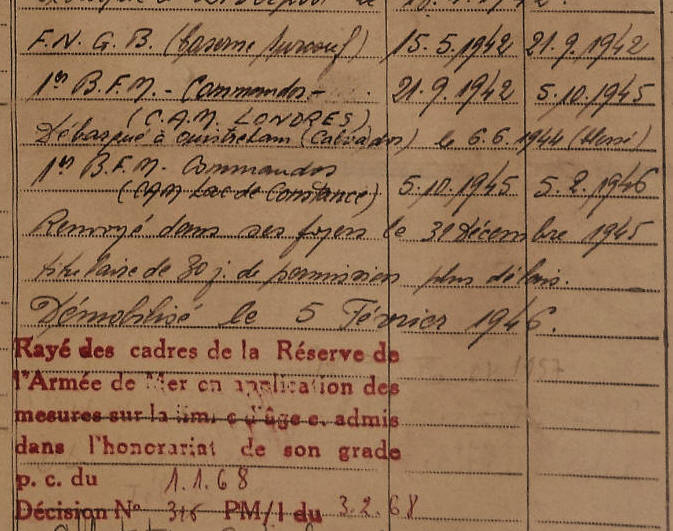 F.N.G.B. (Caserne Surcouf) 15.5.1942 21.9.1942
1er B.F.M. - Commandos - 21.9.1942 5.10.1945
(C.A.M. LONDRES)
Débarqué à Ouistreham (Calvados) le 6.6.1944 (blessé)
1er B.F.M. Commandos
(CAM Lac de Constance) 5.10.1945 5.2.1946
Renvoyé dans ses foyers le 31 Décembre 1945
titulaire de 30 j. de permission plus délais.
Démobilisé le 5 Février 1946.
Rayé des cadres de la Réserve de
l'Armée de Mer en application des
mesures sur la limite d'âge et admis
dans l'honorariat de son grade
p. c. du 1.1.68
Décision N° 316 PM/1 du 3.2.68